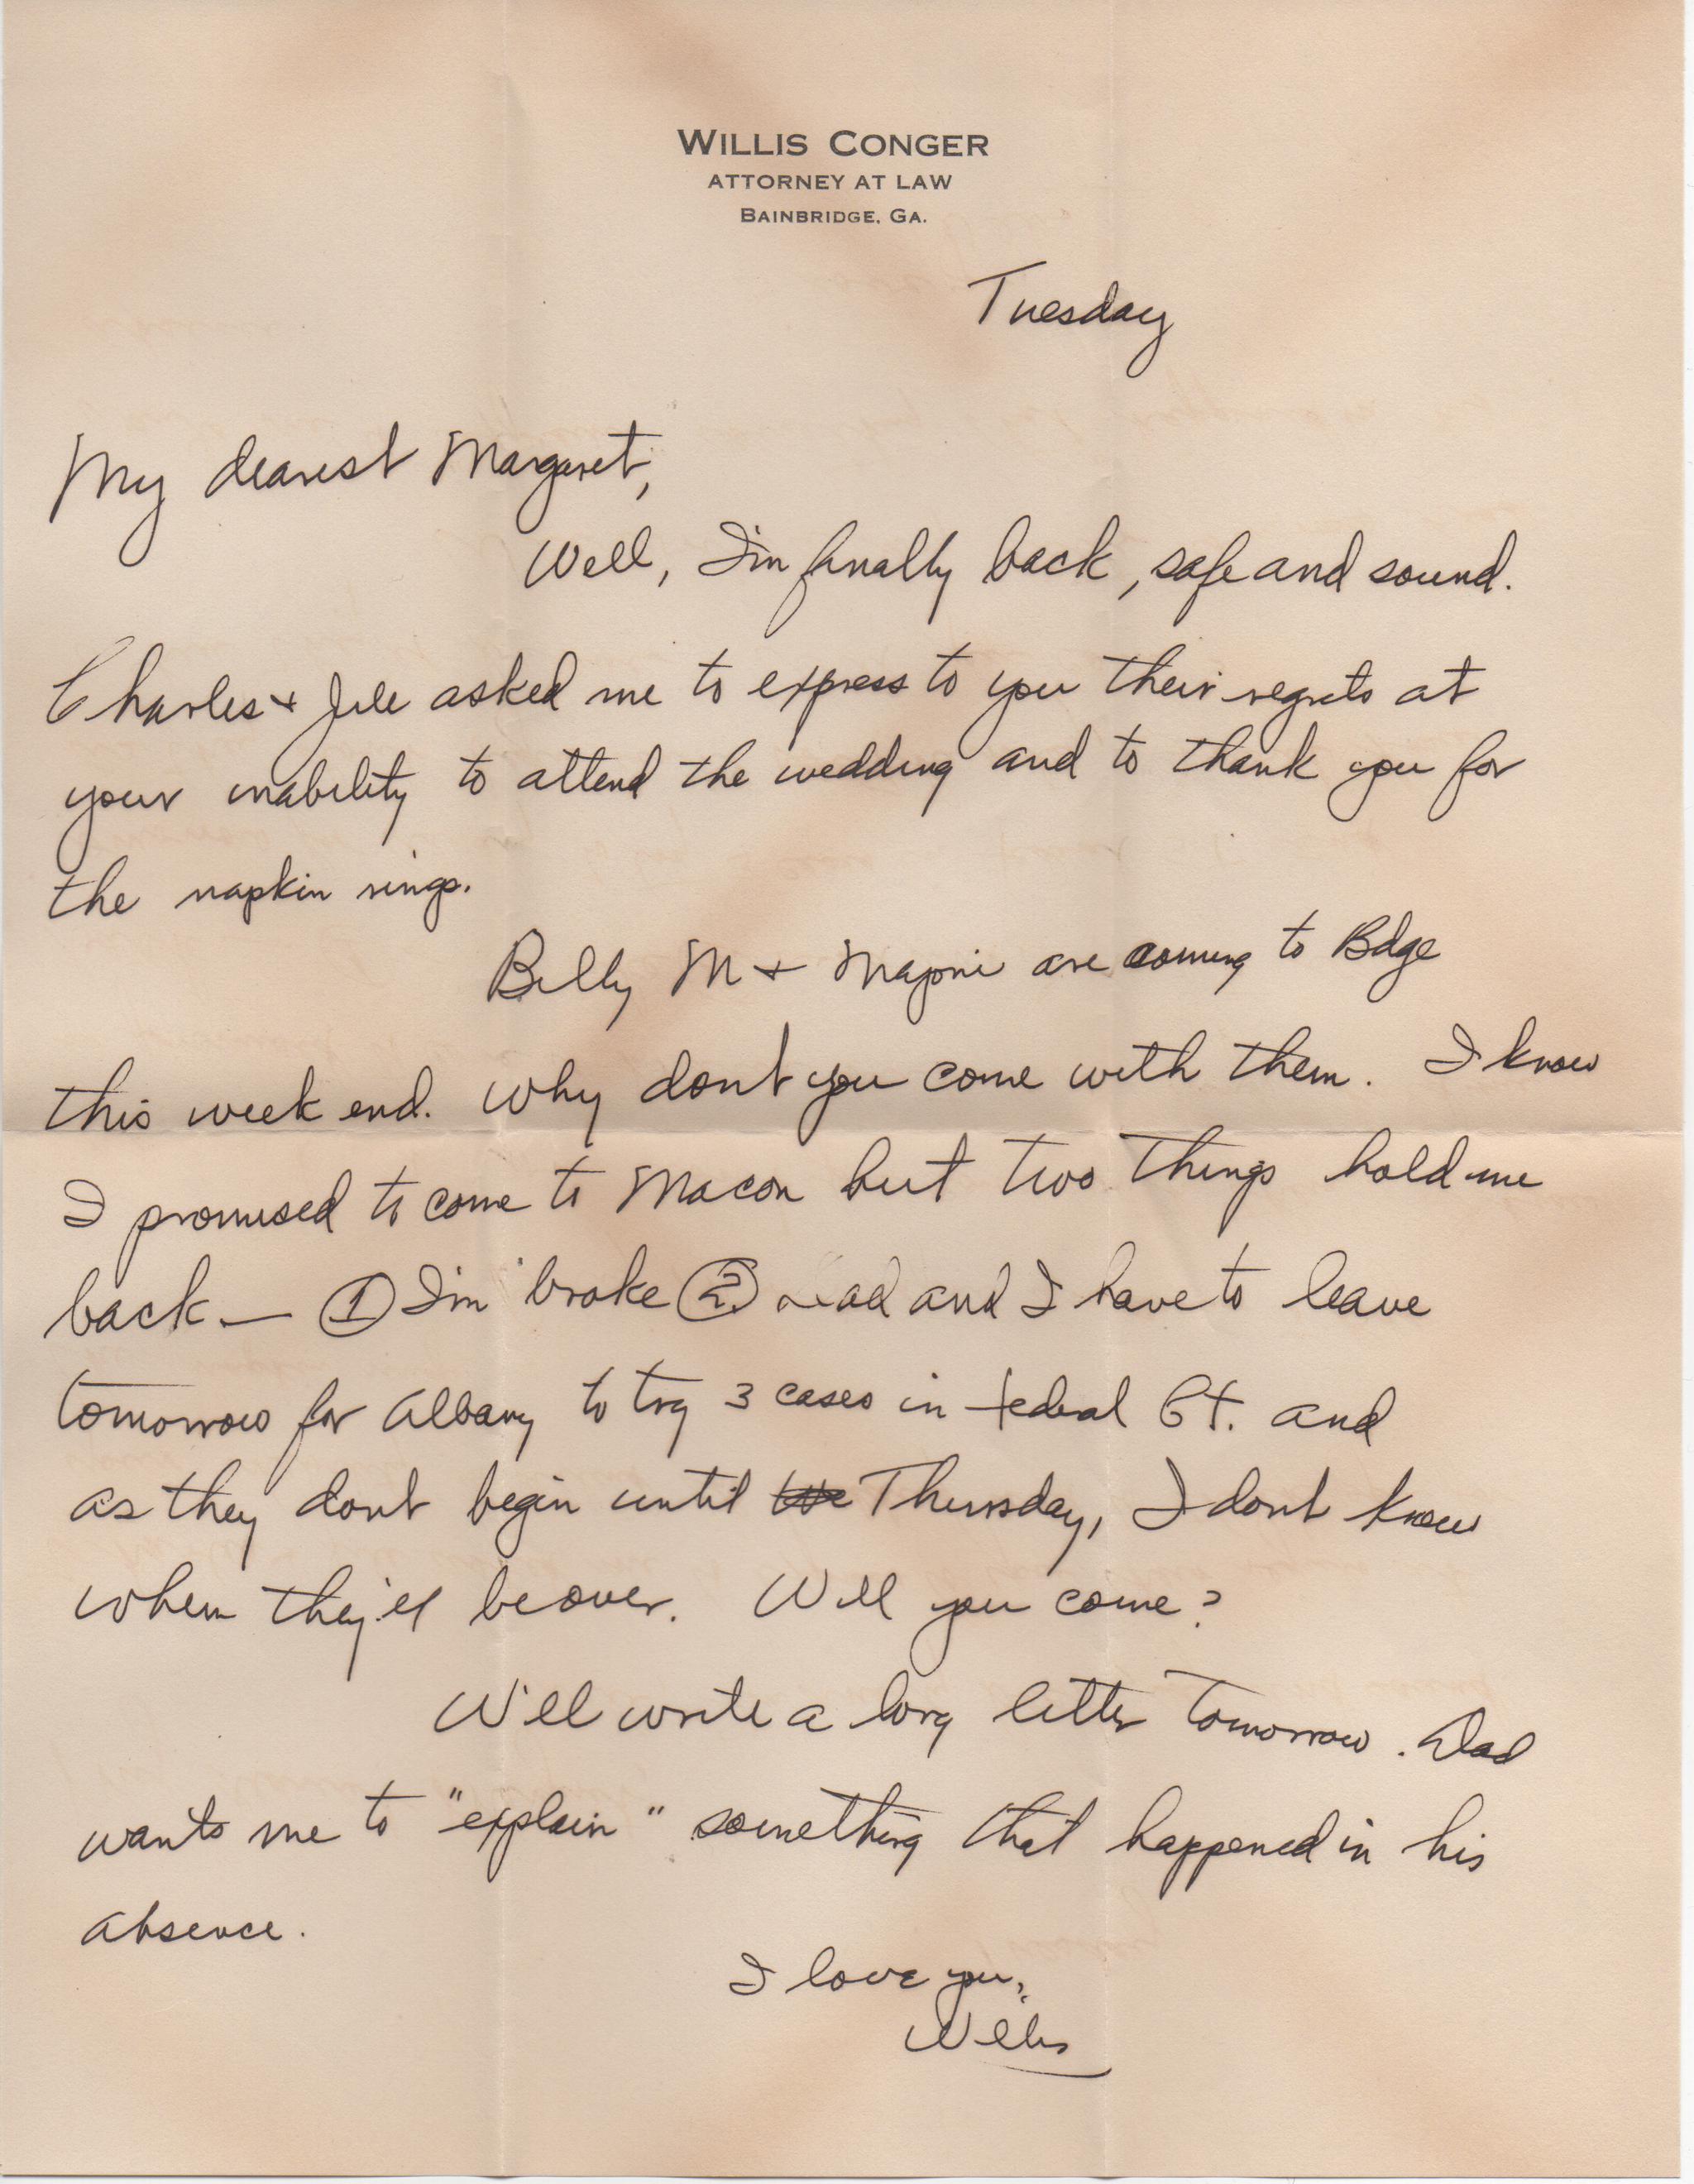 WILLIS CONGER
ATTORNEY AT LAW
BAINBRIDGE, GA.
Tuesday
My dearest Margaret,
Well, I'm finally back, safe and sound.
Charles + asked me to express to you their regrets at
your inability to attend the wedding and to thank you for
the napkin rings.
Billy M + are coming to Bdge
this week end. Why dont you come with them. I know
I promised to come to Macon but two things hold me
back — ① I'm broke ② Dad and I have to leave
tomorrow for Albany to try 3 cases in federal Ct. and
as they dont begin until Thursday, I dont know
when they'll be over. Will you come?
Will write a long letter tomorrow. Dad
wants me to "explain" something that happened in his
absence.
I love you,
Willis